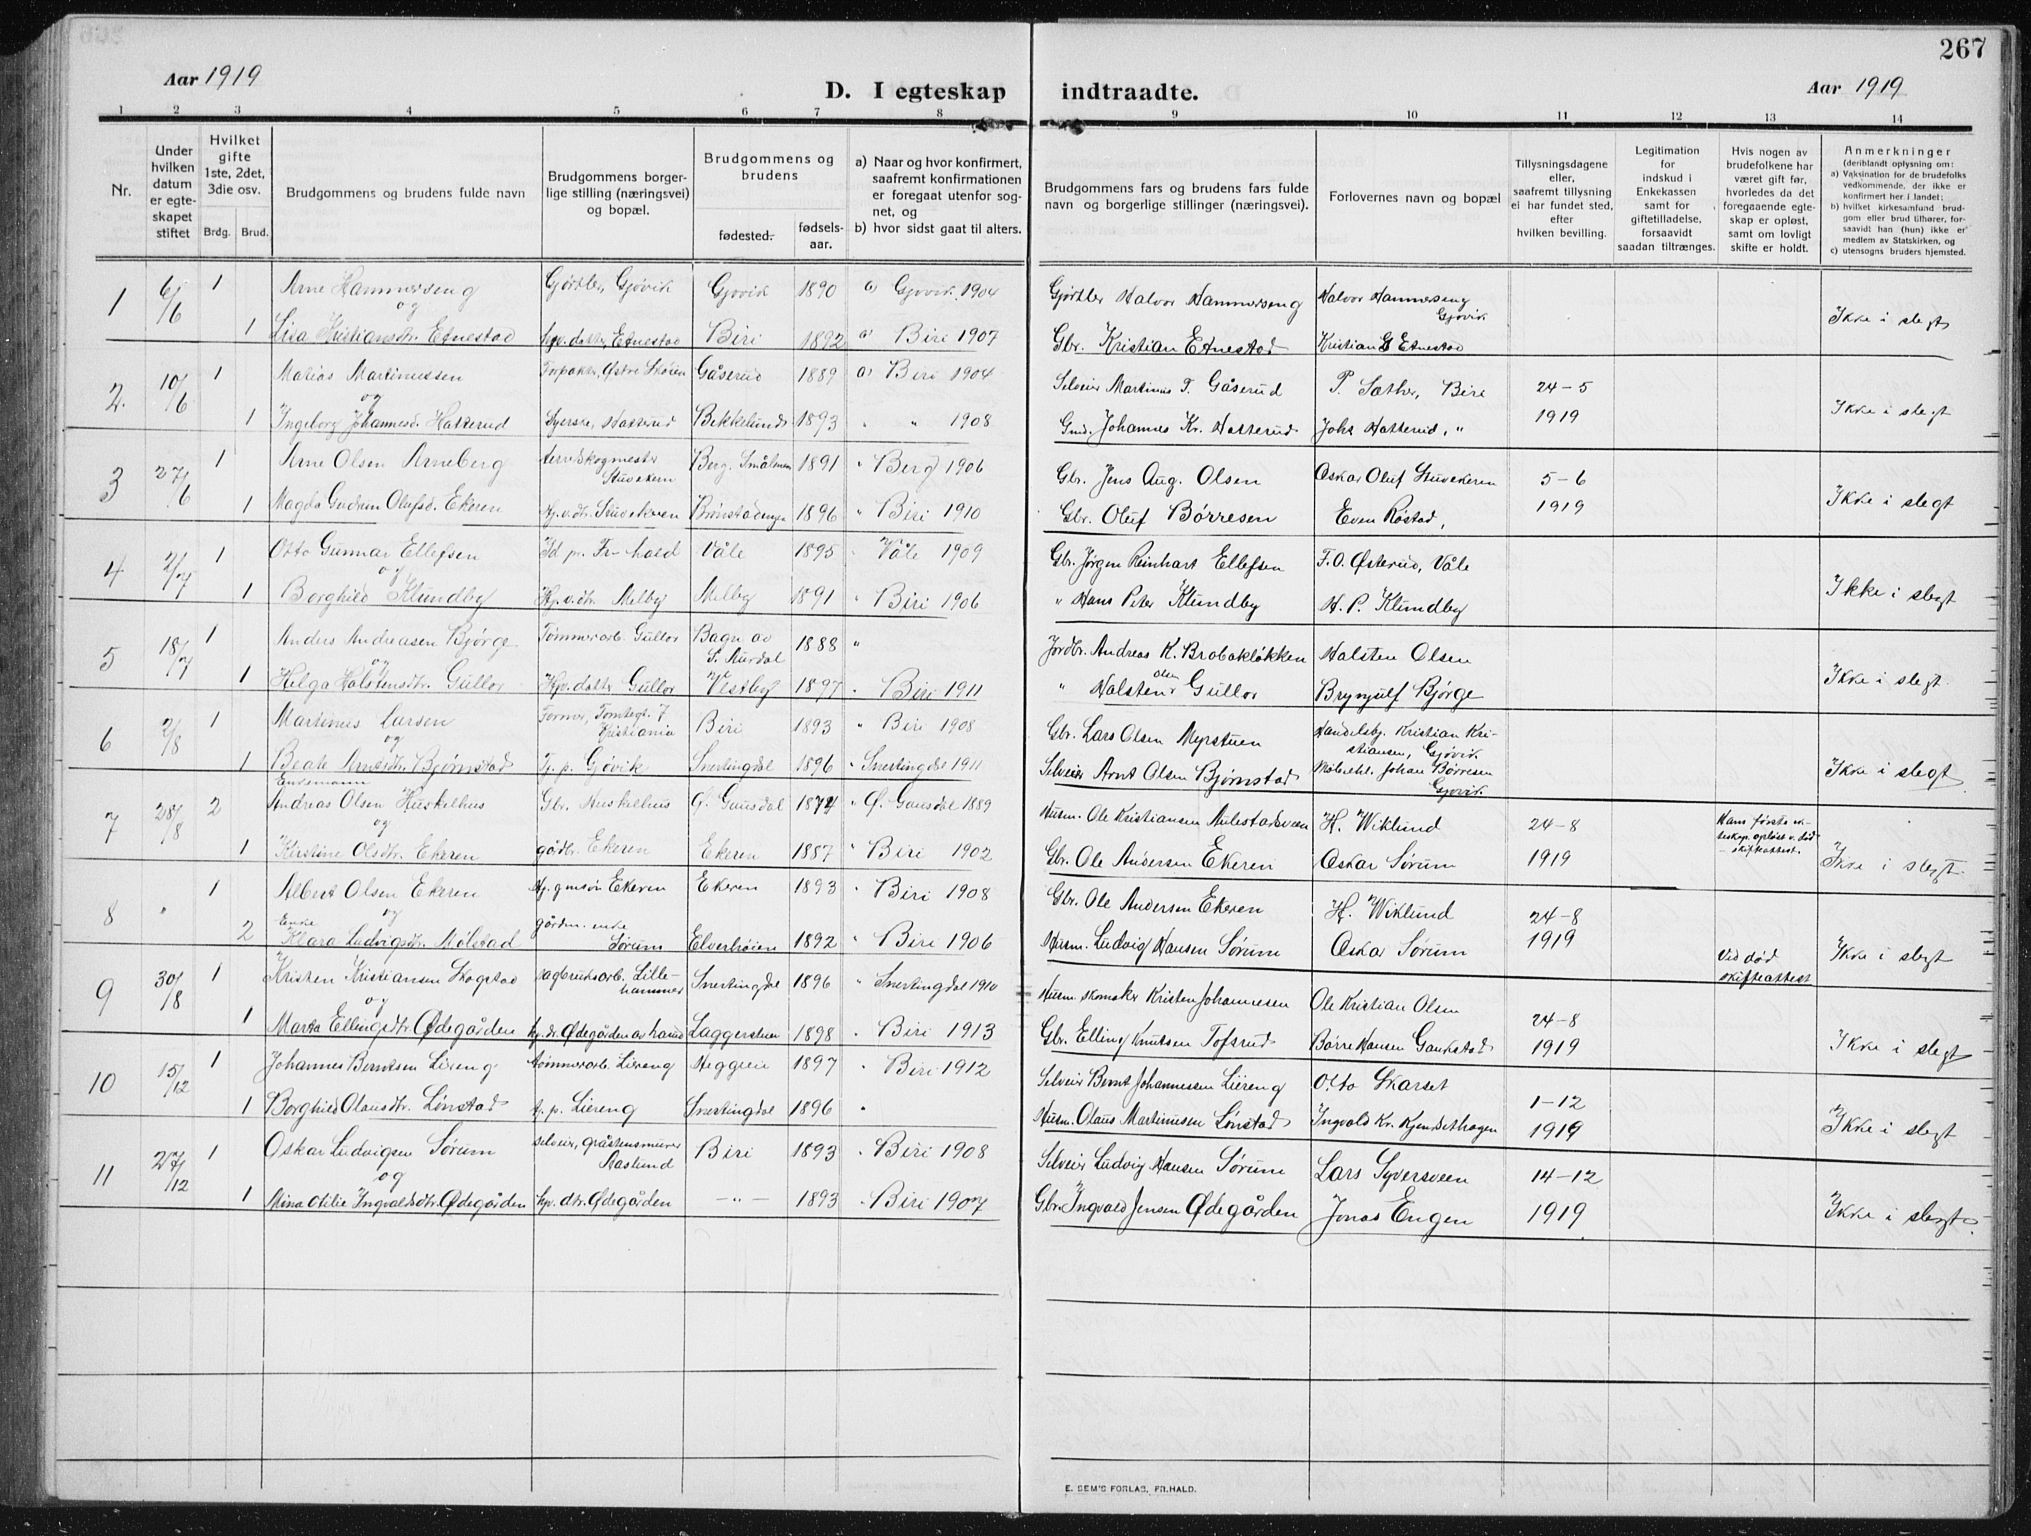 267
Aar 1919
D. I egteskap indtraadte.
Aar 1919
1 2 3 4 5 6 7 8 9 10 11 12 13 14
Nr.
Under hvilken datum er egteskapet stiftet
Hvilket gifte 1ste, 2det, 3die osv.
Brdg. Brud.
Brudgommens og brudens fulde navn
Brudgommens borgerlige stilling (næringsvei) og bopæl.
Brudgommens og brudens
fødested.
fødselsaar.
a) Naar og hvor konfirmert, saafremt konfirmationen er foregaat utenfor sognet, og
b) hvor sidst gaat til alters.
Brudgommens fars og brudens fars fulde navn og borgerlige stillinger (næringsvei).
Forlovernes navn og bopæl
Tillysningsdagene eller, saafremt tillysning ei har fundet sted, efter hvilken bevilling.
Legitimation for indskud i Enkekassen samt for giftetilladelse, forsaavidt saadan tiltrænges.
Hvis nogen av brudefolkene har været gift før, hvorledes da det foregaaende egteskap er opløst, samt om lovligt skifte er holdt.
Anmerkninger
(deriblandt oplysning om:
a) Vaksination for de brudefolks vedkommende, der ikke er konfirmert her i landet;
b) hvilket kirkesamfund brudgom eller brud tilhører, forsaavidt han (hun) ikke er medlem av Statskirken, og
c) utensogns bruders hjemsted.
1 6/6 1 Arne Hammerseng Gjørtler, Gjøvik Gjøvik 1890 a) Gjøvik 1904 Gjørtler Halvor Hammerseng Halvor Hammerseng Gjøvik
og
1 Lisa Kristiansdtr. Etnestad hjv. datter, Etnestad Biri 1892 a) Biri 1907 Gbr. Kristian Etnestad Kristian G Etnestad Ikke i slegt
2. 10/6 1 Matias Martinussen Østre Skøien Gåserud 1889 a) Biri 1904 Selveier Martinus T. Gåserud P. Sæther, Biri 24-5
og
1 Ingeborg Johannesd. Hatterud Syerske, Hatterud Bekkelund 1893 " " 1908 Gmd. Johannes Kr. Hatterud Johs Hatterud, " 1919 Ikke i slegt
3 27/6 1 Arne Olsen Arneberg Herredskogmester Stuvekern Berg. Smålenene 1891 " Berg 1906 Gbr. Jens Aug. Olsen Oskar Oluf Stuvekeren 5-6
1 Magda Gudrun Olufsd. Ekeren Hj.v.dtr. Stuvekeren 1896 " Biri 1910 Gbr. Oluf Børresen Even Røstad, 1919 Ikke i slegt
4 2/7 1 Otto Gunnar Ellefsen Fr-hald Våle 1895 " Våle 1909 Gbr. Jørgen Reinhart Ellefsen F.O. Østerud, Våle
og
1 Borghild Klundby Hj.v.dtr. Melby Melby 1891 " Biri 1906 " Hans Peter Klundby H. P. Klundby Ikke i slegt
5 18/7 1 Anders Andreasen Bjørge Tømmerarb. Gullor Bagn av S. Aurdal 1888 " Jordbr. Andreas K. Brobakløkken Halsten Olsen
og
1 Helga Halstensdtr. Gullor Hjv. datter Gullor Vestby 1897 " Biri 1911 " Halsten Olsen Gullor Brynjulf Bjørge Ikke i slegt
6 2/8 1 Martinus Larsen Former, Tomtegt. 7 Kristiania Biri 1893 " Biri 1908 Gbr. Lars Olsen Myrstuen Handelsbj. Kristian Kristiansen, Gjøvik
og
1 Beate Arnesdtr. Bjørnstad Tj. p. Gjøvik Snertingdal 1896 " Snertingdal 1911 Selveier Arnt Olsen Bjørnstad Møbelhl. Johan Børresen Gjøvik Ikke i slegt
7 28/8 2 Enkemann Andreas Olsen Huskelhus Gbr. Huskelhus Ø. Gausdal 1874 " Ø. Gausdal 1889 Husm. Ole Kristiansen Aulestadsveen H. Wiklund 24-8 Hans første ekteskap opløst v. død - skifteattest.
og
1 Kirstine Olsdtr. Ekeren gårdbr. Ekeren Ekeren 1887 " Biri 1902 Gbr. Ole Andersen Ekeren Oskar Sørum 1919 Ikke i slegt
8 " 1 Albert Olsen Ekeren Hj. gmsøn Ekeren Ekeren 1893 " Biri 1908 Gbr. Ole Andersen Ekeren H. Wiklund 24-8
og
2 Enke Klara Ludvigsdtr. Mølstad gårdm. enke Sørum Elverhøien 1892 " Biri 1906 Husm. Ludvig Hansen Sørum Oskar Sørum 1919 Ved død skifteattest Ikke i slegt
9 30/8 1 Kristen Kristiansen Skogstad Sagbruksarb. Lillehammer Snertingdal 1896 " Snertingdal 1910 Husm. skomaker Kristen Johannesen Ole Kristian Olsen 24-8
og
1 Marta Ellingsdtr. Ødegården hj. dr. Ødegården Laggerstuen 1898 " Biri 1913 Gbr. Elling Knutsen Tofsrud Børre Hansen Gaukstad 1919 Ikke i slegt
10 15/12 1 Johannes Berntsen Liereng tømmerarb. Liereng Heggeie 1897 " Biri 1912 Selveier Bernt Johannessen Liereng Otto Skarset 1-12
1 Borghild Olausdtr. Lønstad tj. p. Liereng Snertingdal 1896 " Husm. Olaus Martinusen Lønstad Ingvald Kr. Kjendsethagen 1919 Ikke i slegt
11 27/12 1 Oskar Ludvigsen Sørum selveier, gråstensmurer Aaslund Biri 1893 " Biri 1908 Selveier Ludvig Hansen Sørum Lars Syversveen 14-12
og
1 Mina Otilie Ingvaldsdtr. Ødegården hjv. dtr. Ødegården -"- 1893 " Biri 1907 Gbr. Ingvald Jensen Ødegården Jonas Engen 1919 Ikke i slegt.
E. SEM'S FORLAG, FR.HALD.